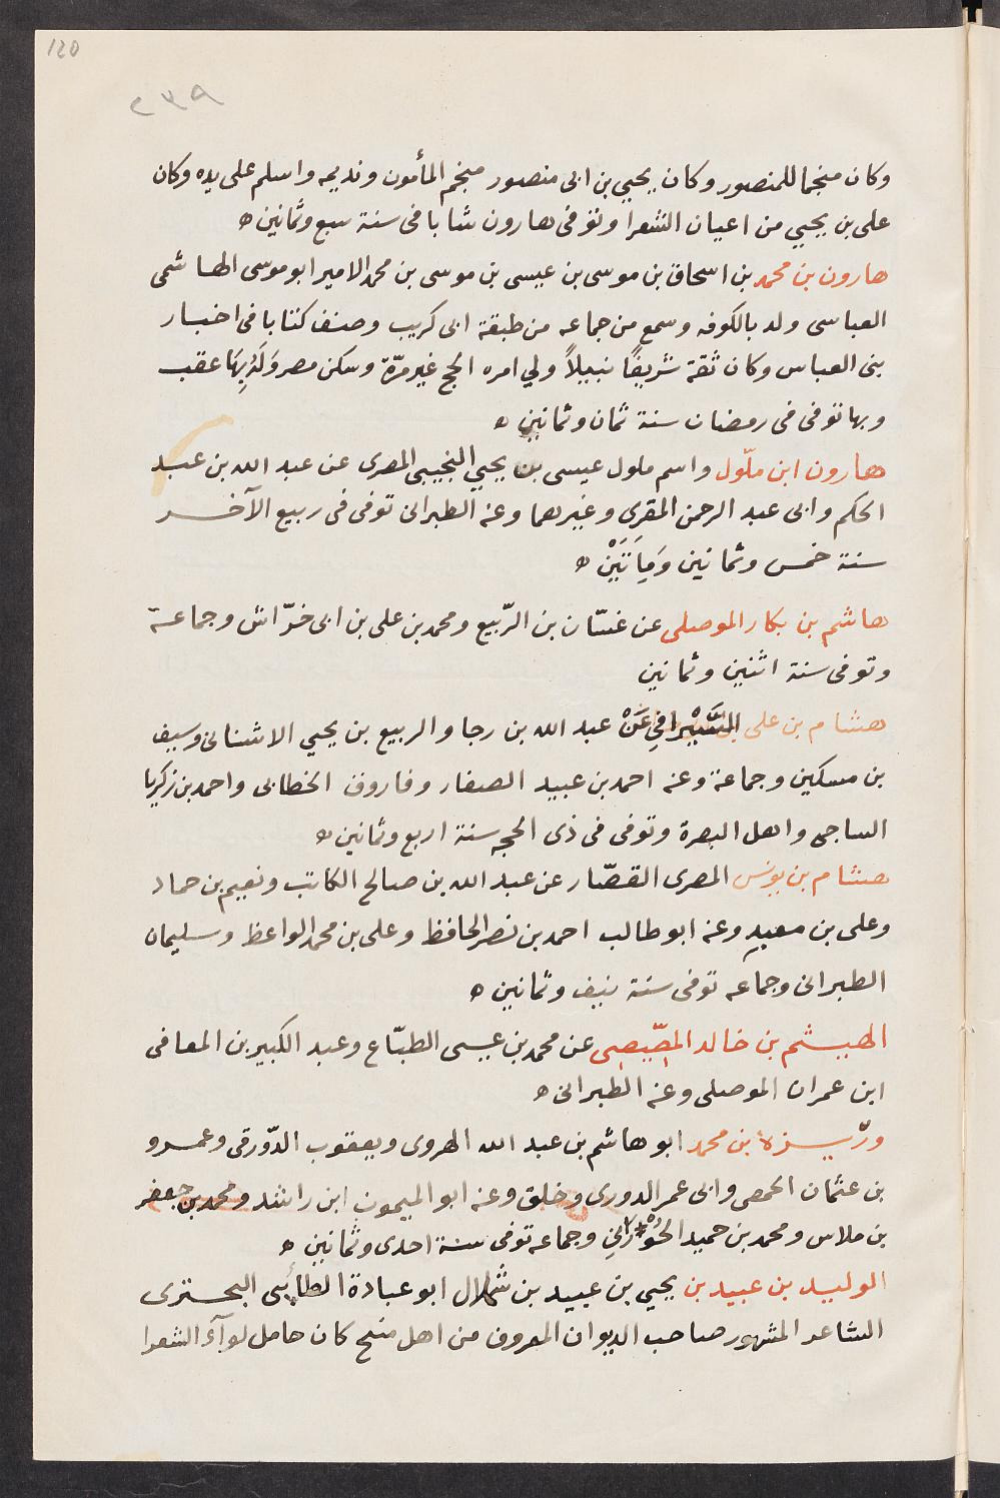 120
٢٣٩
وكان منجما للمنصور وكان يحيي بن ابى منصور منجم المأمون ونديمه واسلم على يده وكان
على بن يحيي من اعيان الشعرا وتوفى هارون شابا فى سنة سبع وثمانين ه
هارون بن محمد بن اسحاق بن موسى بن عيسى بن موسى بن محمد الامير ابو موسى الهاشمى
العباسى ولد بالكوفه وسمع من جماعه من طبقة ابى كريب وصنف كتابا فى اخبار
بنى العباس وكان ثقة شريفًا نبيلاً ولي امره الحج غير مرّة وسكن مصر وَلَهُ بِهَا عقب
وبها توفى فى رمضان سنة ثمان وثمانين ه
هارون ابن ملّول واسم ملول عيسى بن يحيي التجيبى المصرى عن عبد الله بن عبد
الحكم وابى عبد الرحمن المقرى وغيرهما وعنه الطبرانى توفى فى ربيع الآخر
سنة خمس وثمانين وَمِاَتَيْنِ ه
هاشم بن بكار الموصلى عن غسّان بن الرّبيع ومحمد بن على بن ابى خرّاش وجماعة
وتوفى سنة اثنين وثمانين
هشام بن على السَّيْرافي عَنْ عبد الله بن رجا والربيع بن يحيي الاشنانى وسيف
بن مسكين وجماعة وعنه احمد بن عبيد الصفار وفاروق الخطابى واحمد بن زكريا
الساجى واهل البصرة وتوفى فى ذى الحجه سنة اربع وثمانين ه
هشام بن يونس المصرى القصّار عن عبد الله بن صالح الكاتب ونعيم بن حماد
وعلى بن معبدٍ وعنه ابو طالب احمد بن نصر الحافظ وعلى بن محمد الواعظ وسليمان
الطبرانى وجماعه توفى سنة نيف وثمانين ه
الهيشم بن خالد المصّيصى عن محمد بن عيسى الطبّاع وعبد الكبير بن المعافى
ابن عمران الموصلى وعنه الطبرانى ه
ورّيزة بن محمد ابو هاشم بن عبد الله الهروى ويعقوب الدّورقى وعمرو
بن عثمان الحمصى وابى عمر الدورى وخلق وعنه ابو الميمون ابن راشد ومحمد بن جعفر
بن ملاس ومحمد بن حميد الحُوْرَانِي وجماعه توفى سنة احدى وثمانين ه
الوليد بن عبيد بن يحيي بن عبيد بن شملال ابو عبادة الطائى البحترى
الشاعر المشهور صاحب الديوان المعروف من اهل منبج كان حامل لوآء الشعرا